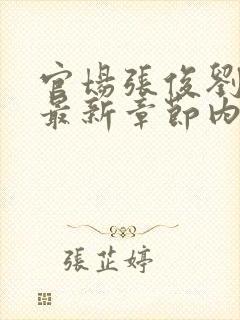 官場張俊劉
最新章節內
張芷婷